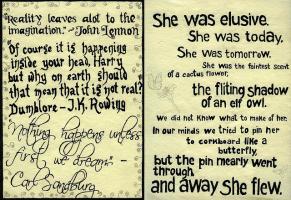 "Reality leaves alot to the
imagination." - John Lennon
"Of course it is happening
inside your head, Harry
but why on earth should
that mean that it is not real?"
Dumblore - J.K. Rowing
Nothing happens unless
first we dream. -
Carl Sandburg
She was elusive.
She was today.
She was tomorrow.
She was the faintest scent
of a cactus flower,
the fliting shadow
of an elf owl.
We did not know what to make of her.
In our minds we tried to pin her
to corkboard like a
butterfly,
but the pin mearly went
through
and away she flew.